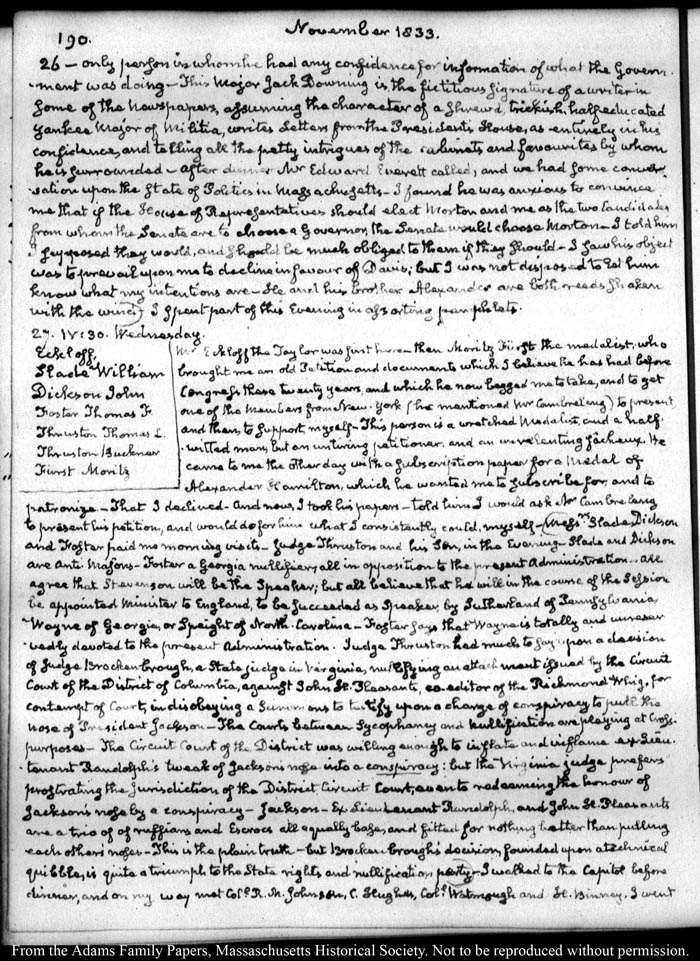 190.
November 1833.
26 — only person in whom he had any confidence for information of what the Govern-
-ment was doing — This Major Jack Downing is the fictitious signature of a writer in
some of the Newspapers, assuming the character of a shrewd, trickish, half educated
Yankee Major of Militia, writes Letters from the President's House, as entirely in his
confidence, and telling all the petty intrigues of the cabinets and favourites by whom
he is surrounded — After dinner Mr Edward Everett called, and we had some conver-
-sation upon the State of Politics in Massachusetts — I found he was anxious to convince
me that if the House of Representatives should elect Morton and me as the two Candidates
from whom the Senate are to choose a Governor, the Senate would choose Morton — I told him
I supposed they would, and should be much obliged to them if they should — I saw his object
was to prevail upon me to decline in favour of Davis; but I was not disposed to let him
know what my intentions are — He and his brother Alexander are both reeds shaken
with the wind; I spent part of this Evening in assorting pamphlets.
27. IV:30. Wednesday.
Eckloff,
Slade William
Dickson John
Foster Thomas F.
Thruston Thomas L.
Thruston Buckner
Fürst Moritz
Mr Eckloff the Taylor was first here then Moritz Fürst the medalist, who
brought me an old Petition and documents which I believe he has had before
Congress these twenty years, and which he now begged me to take, and to get
one of the Members from New-York (he mentioned Mr Cambreleng) to present,
and then to support, myself — This person is a wretched Medalist, and a half-
-witted man, but an untiring petitioner, and an unrelenting fâcheux. He
came to me the other day with a subscription paper for a Medal of
Alexander Hamilton, which he wanted me to subscribe for, and to
patronize — That I declined — And now, I took his papers — told him I would ask Mr Cambreleng
to present his petition, and would do for him what I consistently could, myself — Messrs Slade, Dickson
and Foster paid me morning visits — Judge Thruston and his Son, in the Evening — Slade and Dickson
are Anti Masons — Foster a Georgia nullifier, all in opposition to the present Administration.. All
agree that Stevenson will be the Speaker; but all believe that he will in the course of the Session
be appointed Minister to England, to be succeeded as Speaker by Sutherland of Pennsylvania
Wayne of Georgia, or Speight of North-Carolina — Foster says that Wayne is totally and unreser-
vedly devoted to the present Administration. Judge Thruston had much to say upon a decision
of Judge Brockenbrough, a State judge in Virginia, nullifying an attachment issued by the Circuit
Court of the District of Columbia, against John H. Pleasants, co-editor of the Richmond Whig, for
contempt of Court, in disobeying a Summons to testify upon a charge of conspiracy to pull the
nose of President Jackson — The Courts between Sycophancy and Nullification are playing at cross-
purposes — The Circuit Court of the District was willing enough to inflate and inflame ex-Lieu-
-tenant Randolph's tweak of Jackson's nose into a conspiracy: but the Virginia judge prefers
prostrating the Jurisdiction of the District Circuit Court, even to redeeming the honour of
Jackson's nose by a conspiracy — Jackson — Ex Lieutenant Randolph, and John H. Pleasants
are a trio of ruffians and Escrocs all equally base, and fitted for nothing better than pulling
each others noses — This is the plain truth — but Brockenbrough's decision, founded upon a technical
quibble, is quite a triumph to the State rights and nullification party — I walked to the Capitol before
dinner, and on my way met Coll. R. M. Johnson, C. Hughes, Coll. Watmough and H. Binney. I went
From the Adams Family Papers, Massachusetts Historical Society. Not to be reproduced without permission.